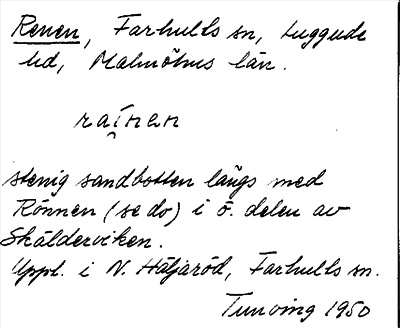 Renen, Farhults sn, Luggude
hd, Malmöhus län.
rai̯nən
stenig sandbotten längs med
Rönnen (se do) i ö. delen av
Skälderviken.
Uppl. i N. Häljaröd, Farhults sn.
Tunving 1950